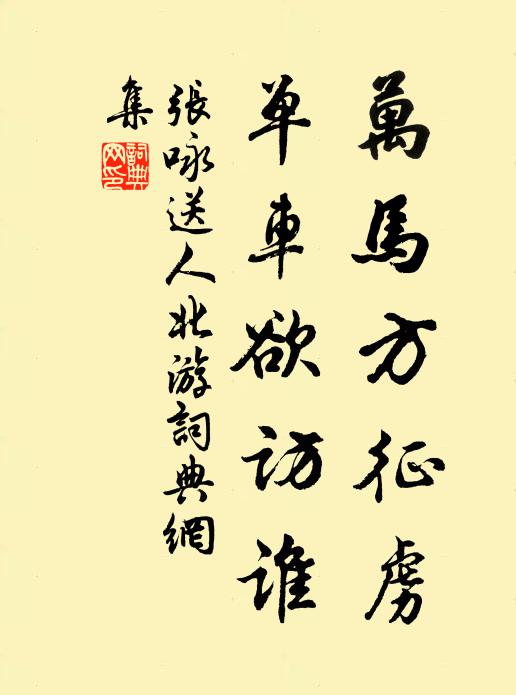 萬馬方征虜
單車欲訪誰
張咏送人北游詞典網
集
詞典網印